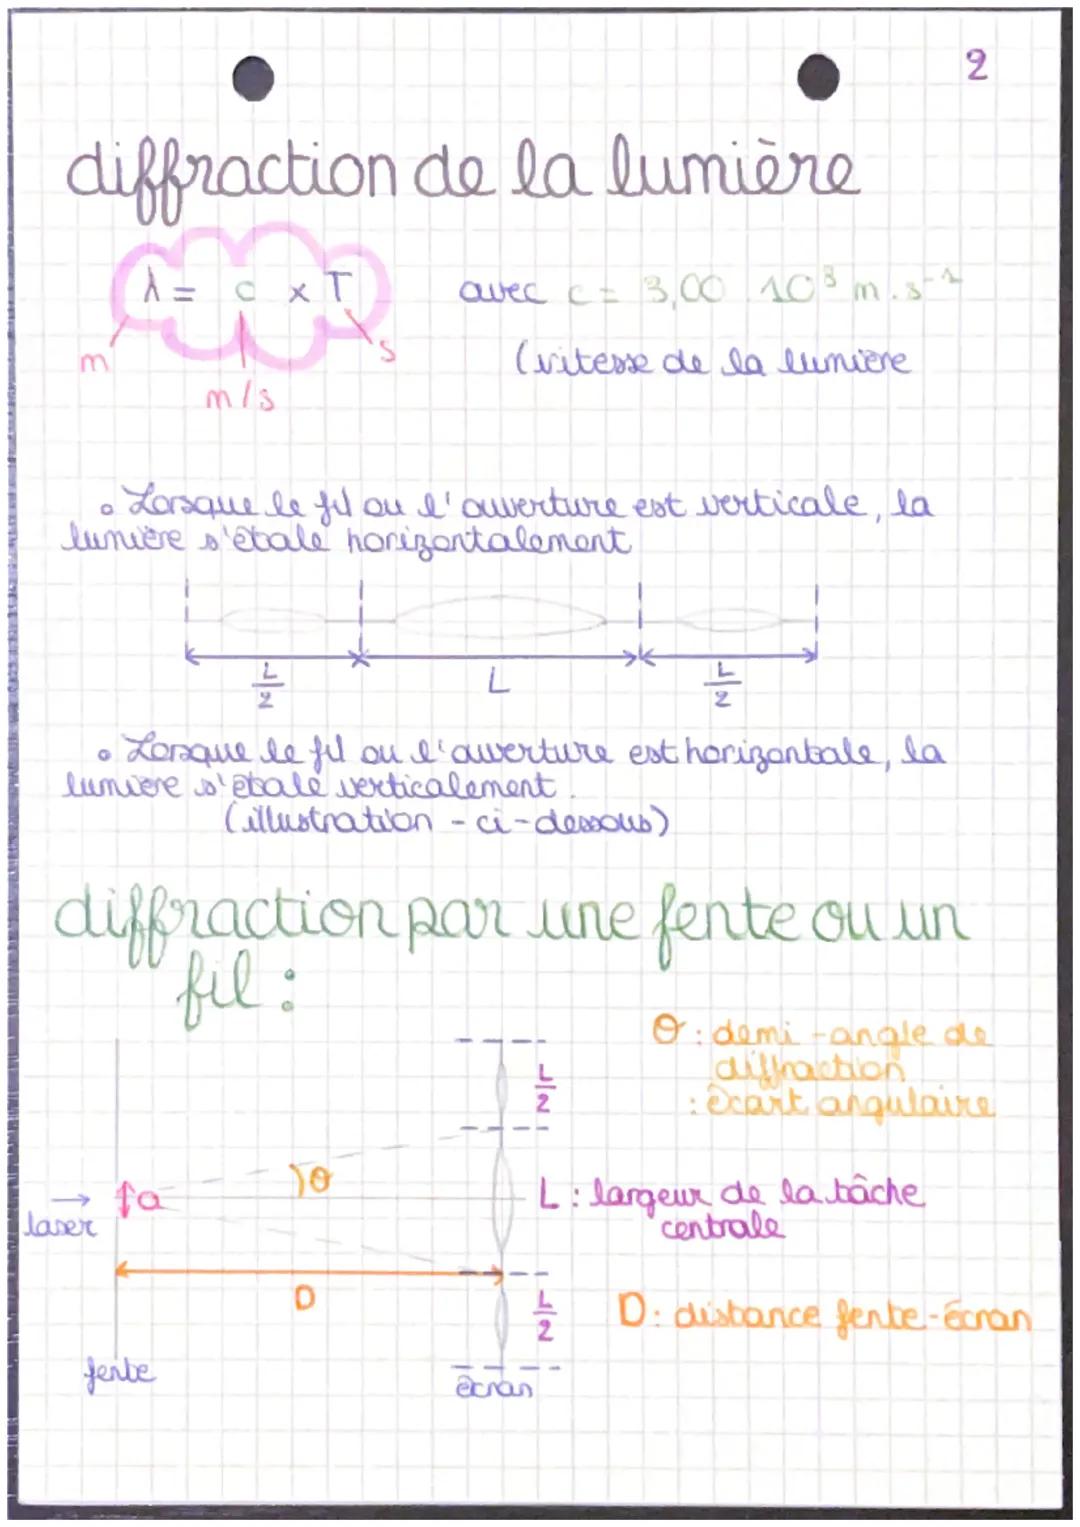 2
diffraction de la lumière
λ = c × T
avec c = 3,00 . 10⁸ m.s⁻¹
m
s
m/s
(vitesse de la lumière
• Lorsque le fil ou l'ouverture est verticale, la
lumière s'étale horizontalement
L/2
L
L/2
• Lorsque le fil ou l'ouverture est horizontale, la
lumière s'étale verticalement.
(illustration - ci-dessous)
diffraction par une fente ou un
fil :
θ : demi-angle de
diffraction
: écart angulaire
L/2
θ
a
laser
L : largeur de la tâche
centrale
D
L/2
D : distance fente-écran
fente
écran